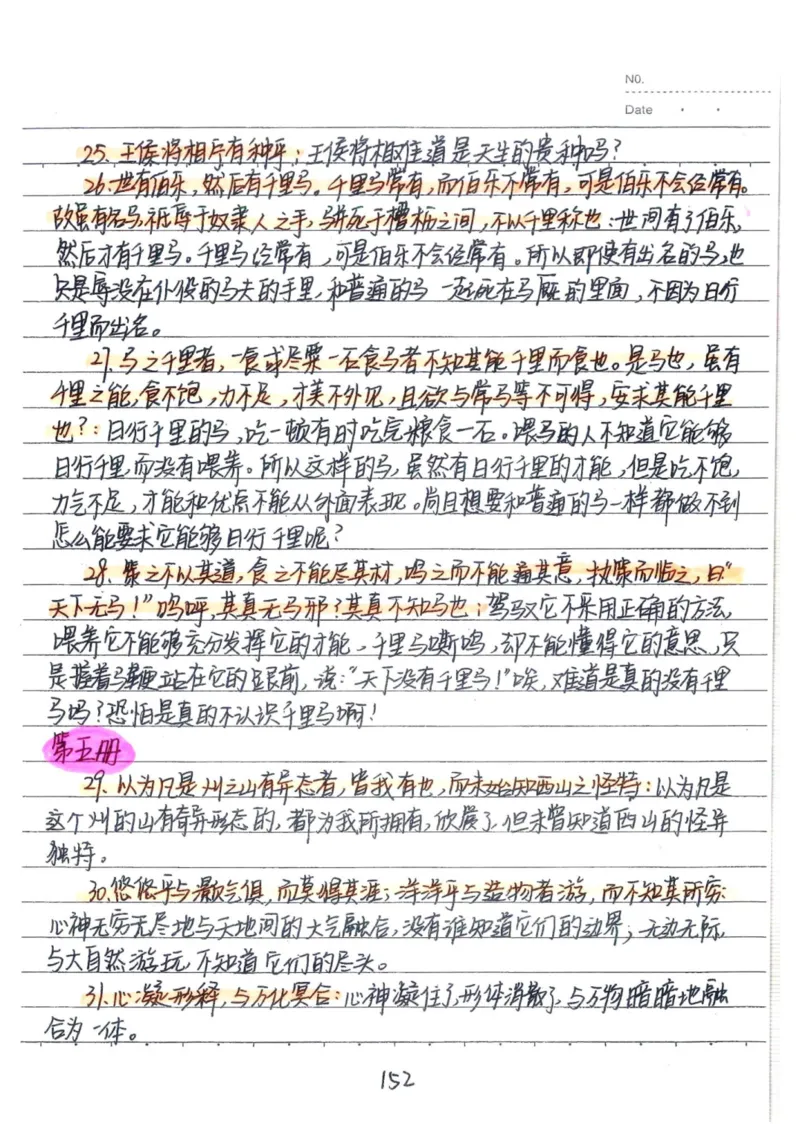 NO.
Date
25. 王侯将相宁有种乎：王侯将相难道是天生的贵种吗？
26. 世有伯乐，然后有千里马。千里马常有，而伯乐不常有，可是伯乐不会经常有。
故虽有名马，祇辱于奴隶人之手，骈死于槽枥之间，不以千里称也：世间有了伯乐，
然后才有千里马。千里马经常有，可是伯乐不会经常有。所以即使有出名的马，也
只是辱没在仆役的马夫的手里，和普通的马一起死在马厩的里面，不因为日行
千里而出名。
27. 马之千里者，一食或尽粟一石食马者不知其能千里而食也。是马也，虽有
千里之能，食不饱，力不足，才美不外见，且欲与常马等不可得，安求其能千里
也？：日行千里的马，吃一顿有时吃完粮食一石。喂马的人不知道它能够
日行千里，而没有喂养。所以这样的马，虽然有日行千里的才能，但是吃不饱，
力气不足，才能和优点不能从外面表现。尚且想要和普通的马一样都做不到
怎么能要求它能够日行千里呢？
28. 策之不以其道，食之不能尽其材，鸣之而不能通其意，执策而临之，曰：“
天下无马！”呜呼，其真无马邪？其真不知马也；驾驭它不采用正确的方法，
喂养它不能够充分发挥它的才能，千里马嘶鸣，却不能懂得它的意思，只
是握着马鞭站在它的跟前，说：“天下没有千里马！”唉，难道是真的没有千里
马吗？恐怕是真的不认识千里马啊！
第五册
29. 以为凡是州之山有异态者，皆我有也，而未始知西山之怪特：以为凡是
这个州的山有奇异形态的，都为我所拥有，欣赏了，但未曾知道西山的怪异
独特。
30. 悠悠乎与灏气俱，而莫得其涯；洋洋乎与造物者游，而不知其所穷：
心神无穷无尽地与天地间的大气融合，没有谁知道它们的边界；无边无际，
与大自然游玩，不知道它们的尽头。
31. 心凝形释，与万化冥合：心神凝住了，形体消散了，与万物暗暗地融
合为一体。
152